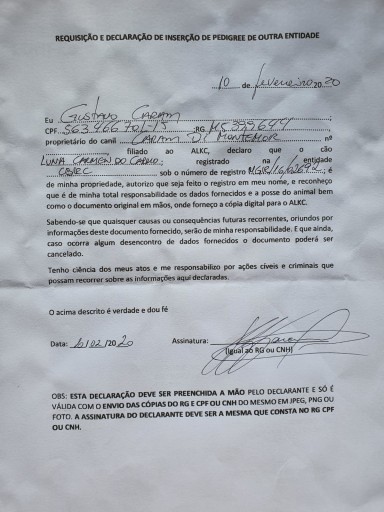 REQUISIÇÃO E DECLARAÇÃO DE INSERÇÃO DE PEDIGREE DE OUTRA ENTIDADE
10 de fevereiro 2020
Eu Gustavo Caram
CPF 563.466 701-15 RG MS 399644
proprietário do canil CARAM DI MONTEMOR nº
filiado ao ALKC, declaro que o cão
LUNA CARMEN DO registrado na entidade
CBRC sob o número de registro MGR/16/02694; é
de minha propriedade, autorizo que seja feito o registro em meu nome, e reconheço
que é de minha total responsabilidade os dados fornecidos e a posse do animal bem
como o documento original em mãos, onde forneço a cópia digital para o ALKC.
Sabendo-se que quaisquer causas ou consequências futuras recorrentes, oriundos por
informações deste documento fornecido, serão de minha responsabilidade. E que ainda,
caso ocorra algum desencontro de dados fornecidos o documento poderá ser
cancelado.
Tenho ciência dos meus atos e me responsabilizo por ações cíveis e criminais que
possam recorrer sobre as informações aqui declaradas.
O acima descrito é verdade e dou fé
Data: 10/02/2020 Assinatura:
(Igual ao RG ou CNH)
OBS: ESTA DECLARAÇÃO DEVE SER PREENCHIDA A MÃO PELO DECLARANTE E SÓ É
VÁLIDA COM O ENVIO DAS CÓPIAS DO RG E CPF OU CNH DO MESMO EM JPEG, PNG OU
FOTO. A ASSINATURA DO DECLARANTE DEVE SER A MESMA QUE CONSTA NO RG CPF
OU CNH.